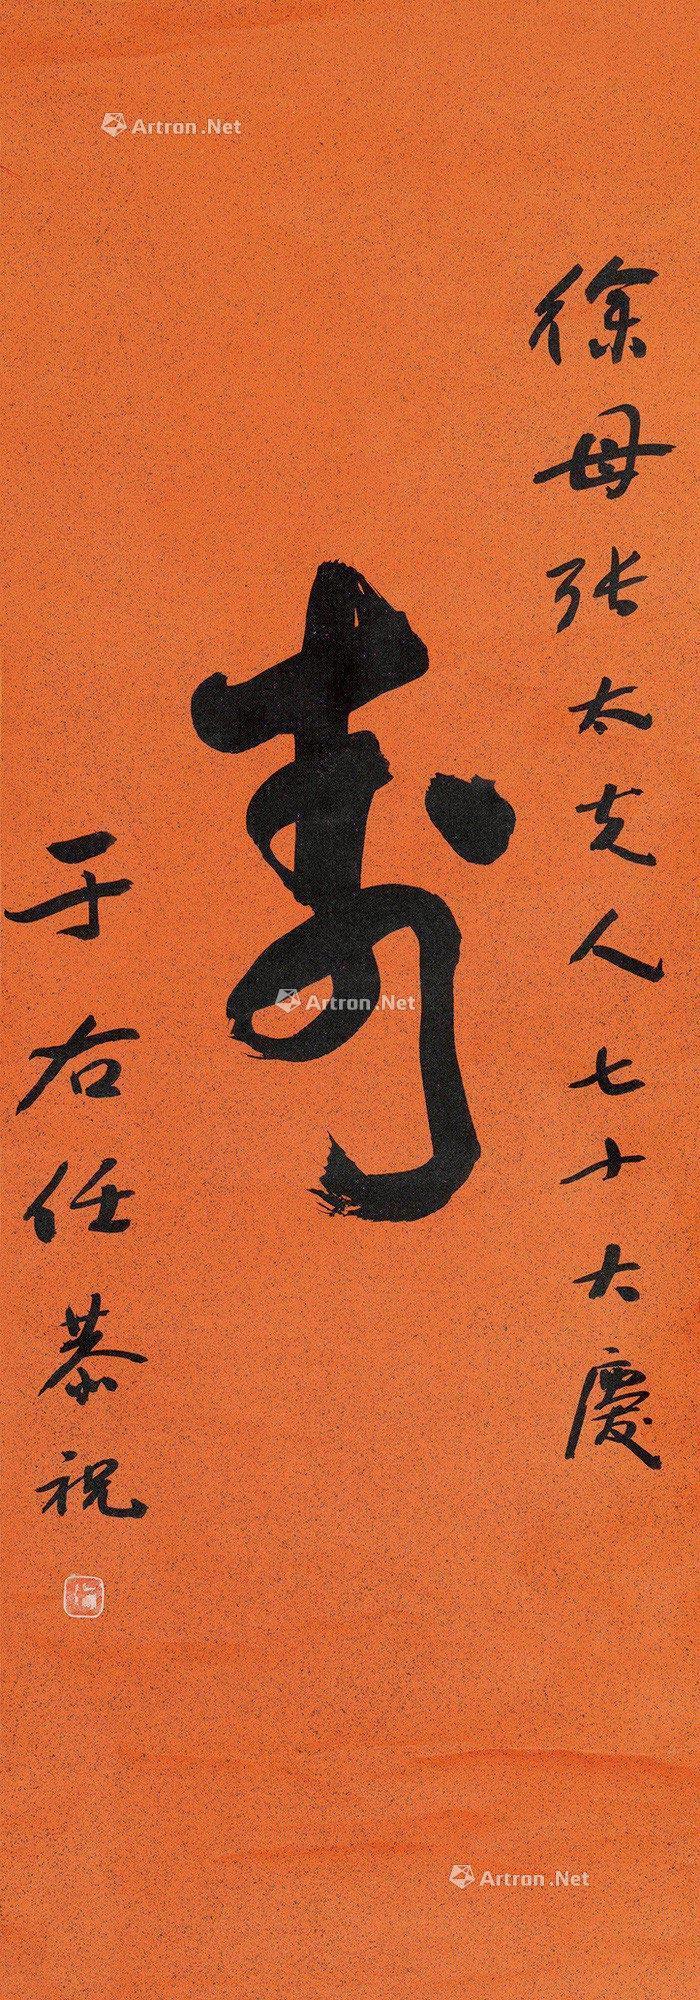 Artron.Net
徐母張太夫人七十大慶
壽
Artron.Net
于右任恭祝
Artron.Net